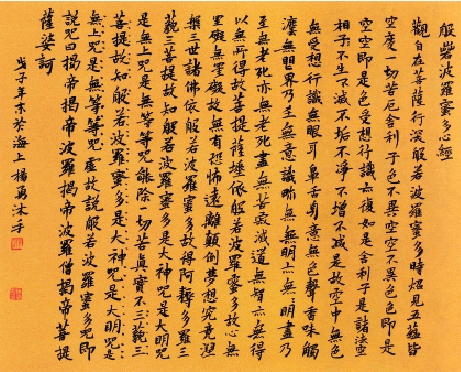 般若波羅蜜多心經
觀自在菩薩行深般若波羅蜜多時照見五蘊皆
空度一切苦厄舍利子色不異空空不異色色即是
空空即是色受想行識亦復如是舍利子是諸法空
相子不生不滅不垢不淨不增不減是故空中無色
無受想行識無眼耳鼻舌身意無色聲香味觸
法無眼界乃至無意識界無無明亦無無明盡乃
至無老死亦無老死盡無苦寂滅道無智亦無得
以無所得故菩提薩埵依般若波羅蜜多故心無
罣礙無罣礙故無有恐怖遠離顛倒夢想究竟涅
槃三世諸佛依般若波羅蜜多故得阿耨多羅三
藐三菩提故知般若波羅蜜多是大神咒是大明咒
是無上咒是無等等咒能除一切苦真實不三藐三
菩提故知般若波羅蜜多是大神咒是大明咒是
無上咒是無等等咒虛故說般若波羅蜜多咒即
說咒曰揭帝揭帝波羅揭帝波羅僧揭帝菩提
薩婆訶
戊子年末於海上楊勇沐手